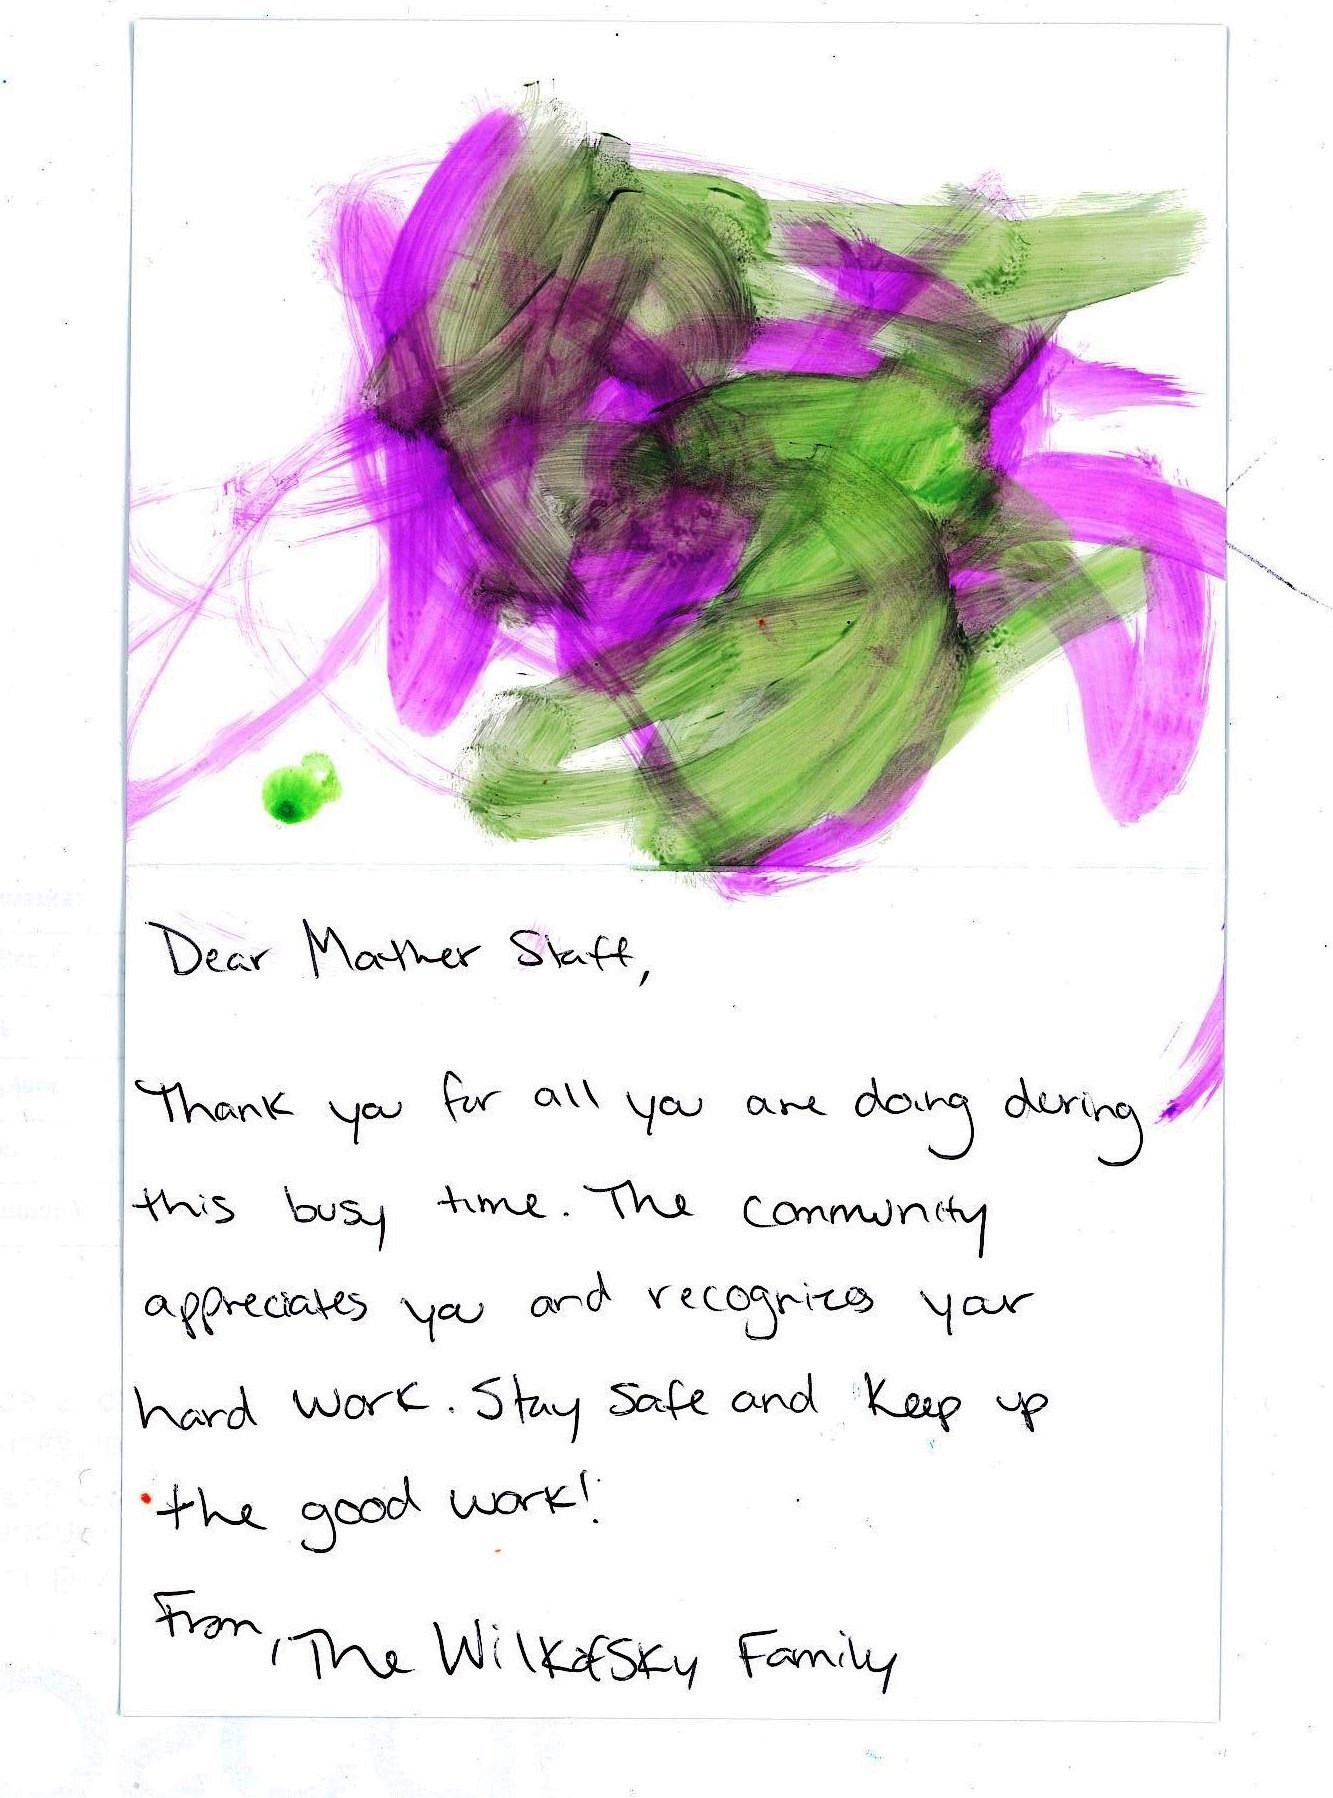 Dear Mather Staff,
Thank you for all you are doing during
this busy time. The community
appreciates you and recognizes your
hard work. Stay safe and keep up
the good work!
From, The Wilkofsky Family